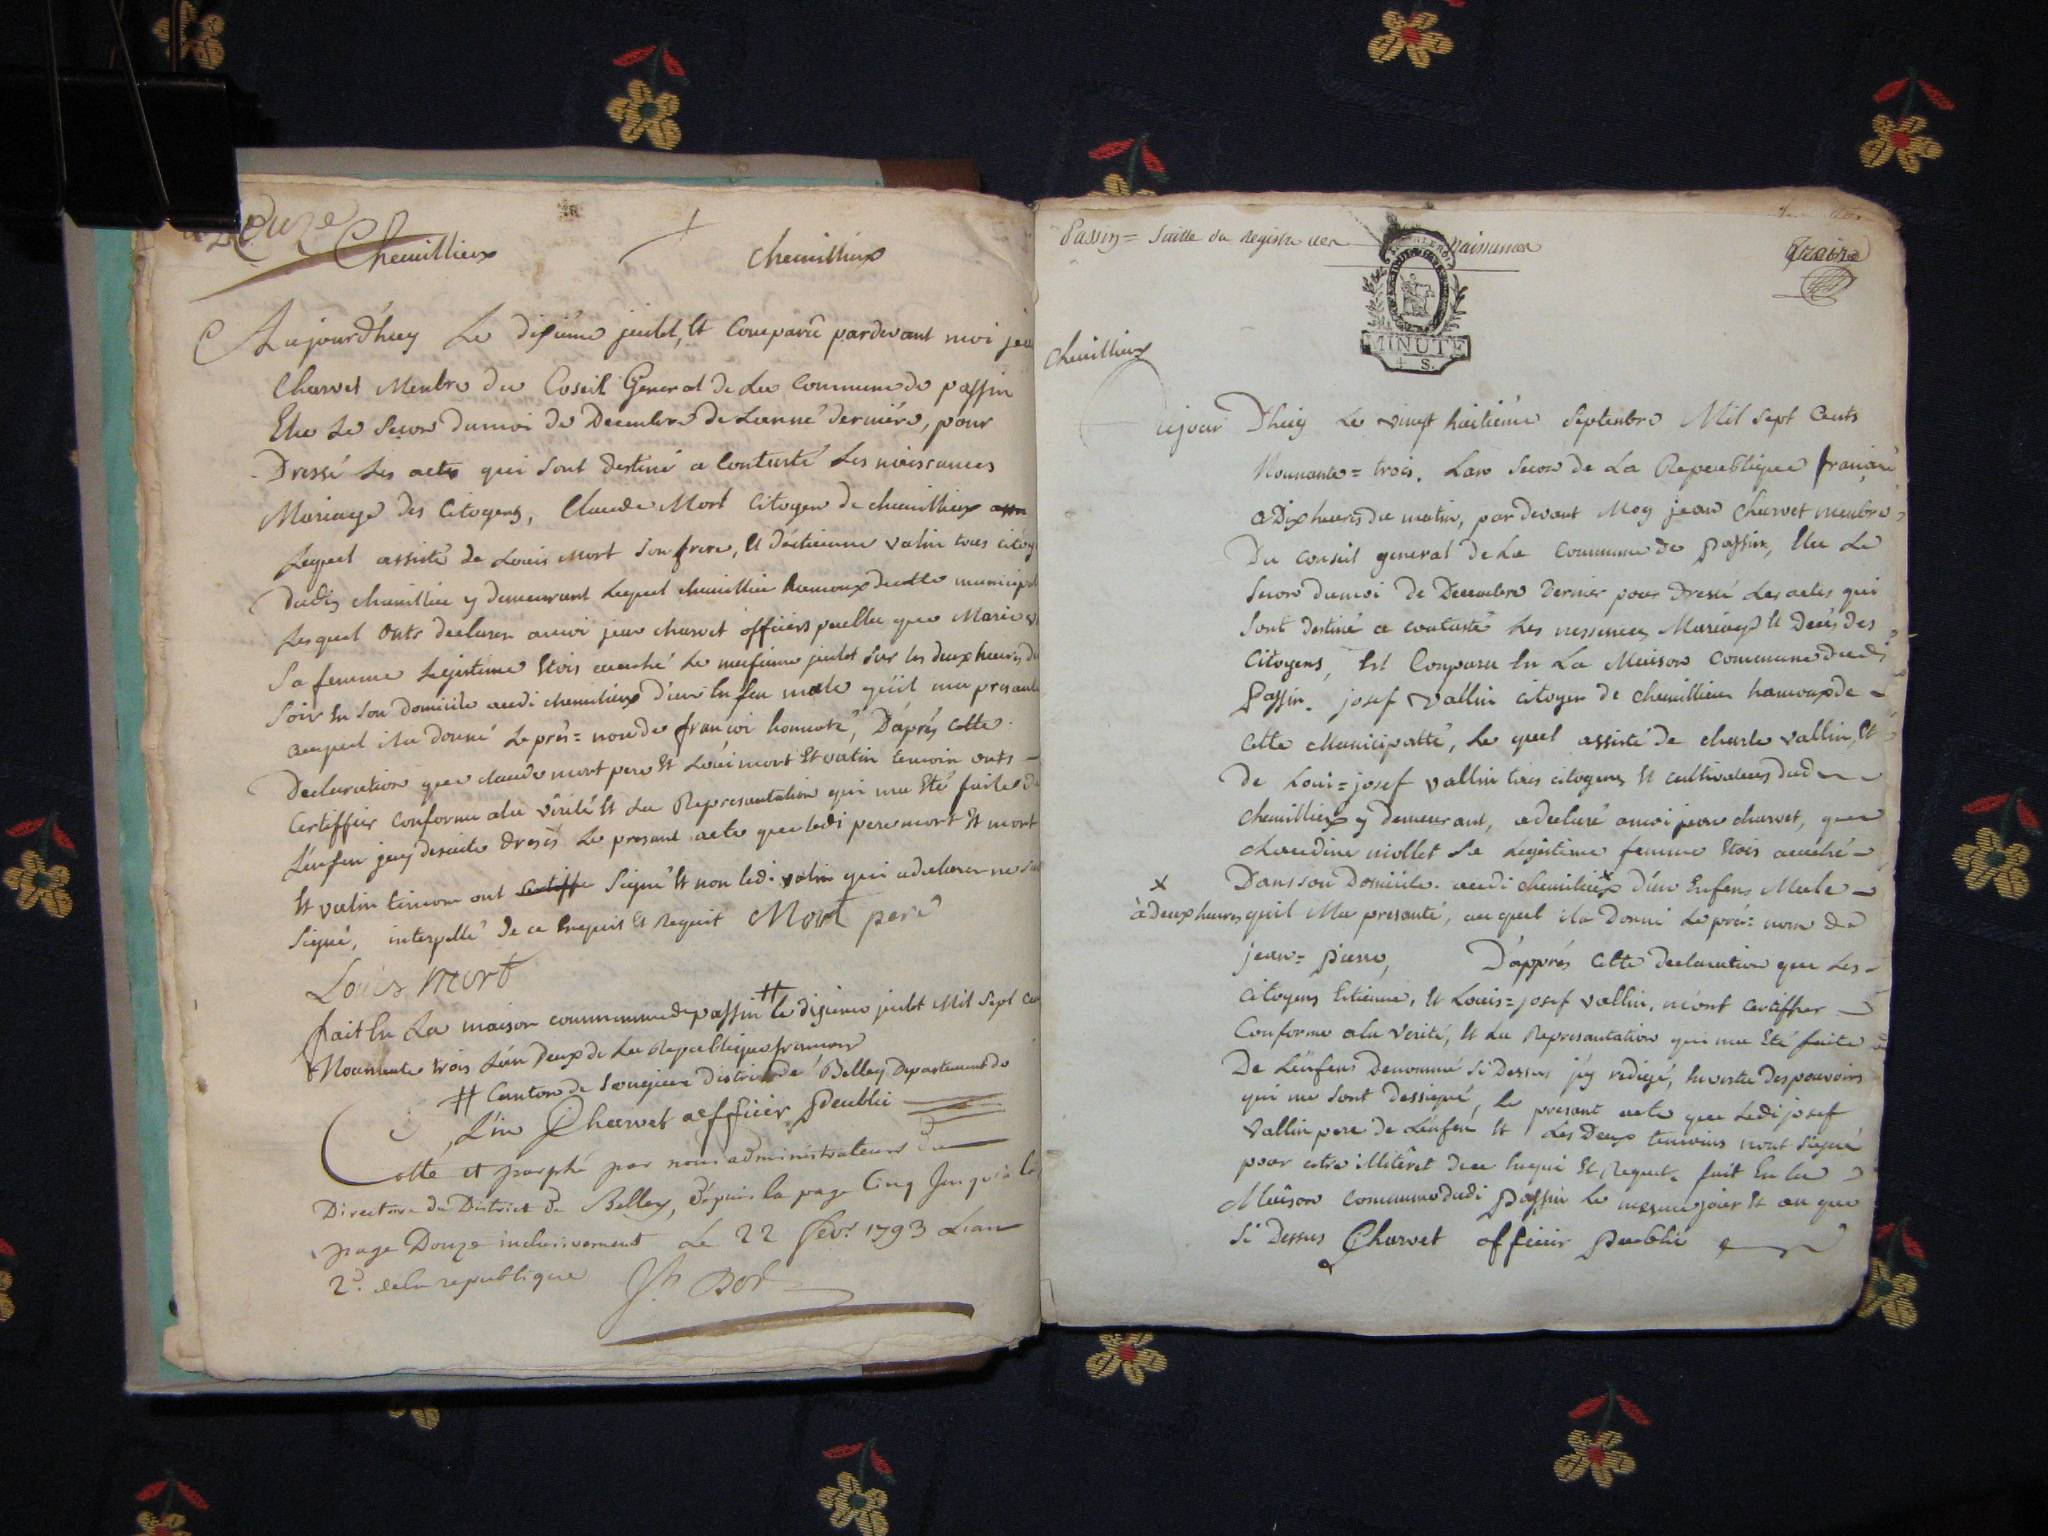 Douze
Chemillieu
chemillieux
Aujourd'huy Le dixiéme jeulet, Et Comparû pardevant moi jea
Charvet Menbre du Coseil General de La Commune de passin
Elue Le Secon dumoi de Decembre de Lanné derniére, pour
Dressé Les actes qui Sont destiné a Contasté Les naissances
Mariage des Citoyens, Claude Mort Citoyen de chemillieux
Lequel assisté de Louis Mort Son frere, Et détienne valin tous citoy
Dudi chemillieu y demeurant Lequel chemillieu hamoux de municipal
Lesquel Onts declarer amoi jean charvet officiers publie que Marie
Sa femme Legistime Etois auché Le neufieme jeulet Sur les deux heures du
Soir En Son domicile audi chemilieux d'un Enfen male qu'il ma presanté
auquel ila donné Le prés= nom de françoi honnoré, D'aprés Cette
Declaration que claude mort pere Et Loui mort Et valin témoin onts
Certiffier Conforme ala vérité Et La Representation qui ma Eté faite de
L'énfen jay desuite dresés Le presant acte que ledi pere mort Et mort
Et valin témoin ont Signé Et non ledi valin qui adeclarer ne
Signé, interpellé de ce Enquis Et Requit Mort pere
Louis mort
fait En La maison commune de passin # le dixieme jeulet Mil Sept Cen
Nonnente trois L'an deux de La Republique francoise
# Canton de Songieu District de Belley Departement de
L'in Charvet officier Peublic
Cotté et paraphé par nous administrateurs du
Directoire du District de Belley, dépuis la page Cinq Jusqu'à la
page Douze inclusivement Lé 22 febr. 1793 L'an
2e. de la republique Jh Dor
Passin = Suitte du Registre des naissances
Traize
MINUTE
4 S.
chemillieux
Aujour Dhuy Le vingt huitiéme Septembre Mil Sept Cents
Nonnante= trois. Lan Secon de La Republique françaice
a Dix heures du matin, par devant Moy jean Charvet menbre
Du conseil general de La Commune de Passin, Elue Le
Secon dumoi de Decembre dernier pour dressé Les actes qui
Sont destiné a contasté Les nessences Mariages Et Decés des
Citoyens, Est Conparu En La Maison Commune dudi
Passin. josef Vallin citoyen de chemillieu hamoux de
Cette Municipalité, Le quel assisté de charle vallin, Et
De Loui=josef vallin tous citoyens Et cultivateurs dud
chemillieux y demeurant, adeclaré amoi jean charvet, que
claudine mollet Sa Legistime femme Etois auché
Dansson Domicile audi chemilieux x d'un Enfens Male
x
à deux heures quil Ma presanté, au quel ila Donné Le pré= nom de
jean= Pierre, D'apprés Cette declaration que Les
Citoyens Etienne, Et Louis=josef vallin, m'ont Certiffier
Conforme ala vérité, Et La Representation qui ma Eté faite
De L'énfen Denommé Si Dessus j'ay redigé, En vertu des pouvoirs
qui me Sont dessigné, Le presant acte que Ledi josef
Vallin pere de L'énfen Et Les Deux temoins n'ont Signé
pour estre illitéret de ce Enquis Et Requit. fait En La
Maison commune dudi Passin Le mesme jour Et an que
Si Dessus Charvet officier Peublic